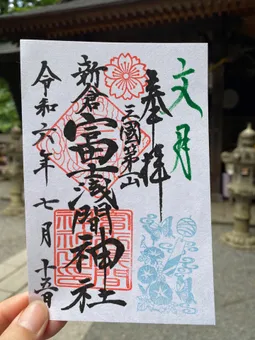 文月
奉拝
三國第一山
新倉
富士浅間神社
令和六年 七月 十五日